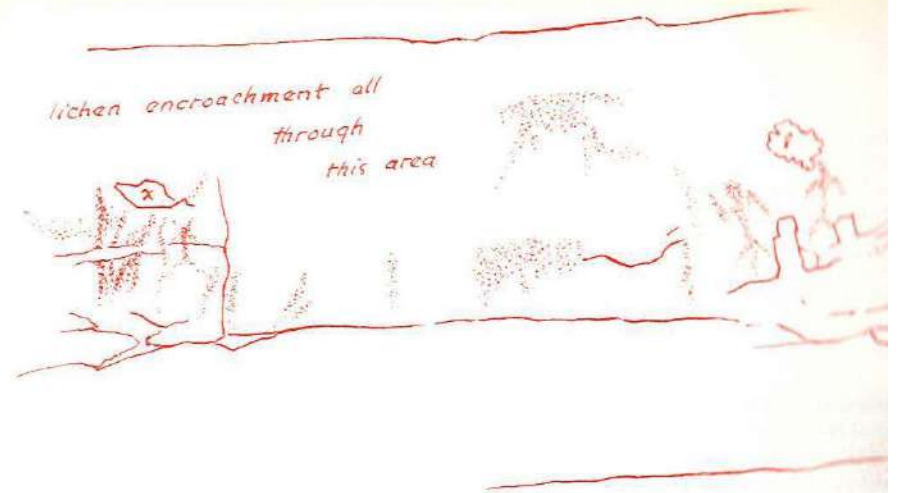 lichen encroachment all
through
this area
x